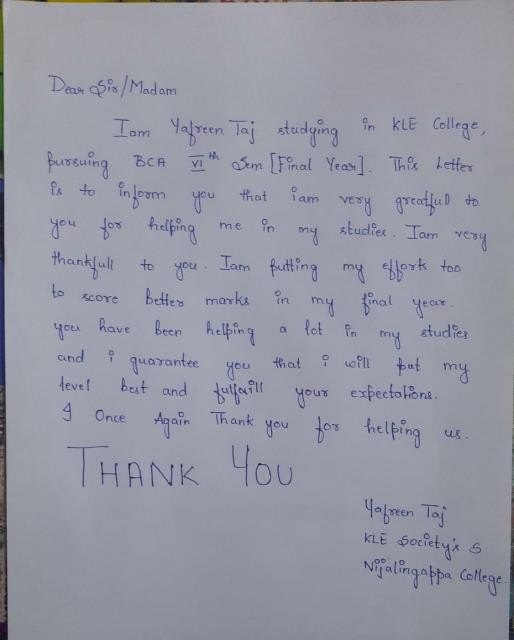 Dear Sir/Madam
Iam Yafreen Taj studying in KLE College,
pursuing BCA VIth Sem [Final Year]. This Letter
is to inform you that iam very greatfull to
you for helping me in my studies. Iam very
thankfull to you. Iam putting my efforts too
to score better marks in my final year.
you have been helping a lot in my studies
and i guarantee you that i will put my
level best and your expectations.
I Once Again Thank you for helping us.
THANK YOU
Yafreen Taj
KLE Society's S
Nijalingappa College